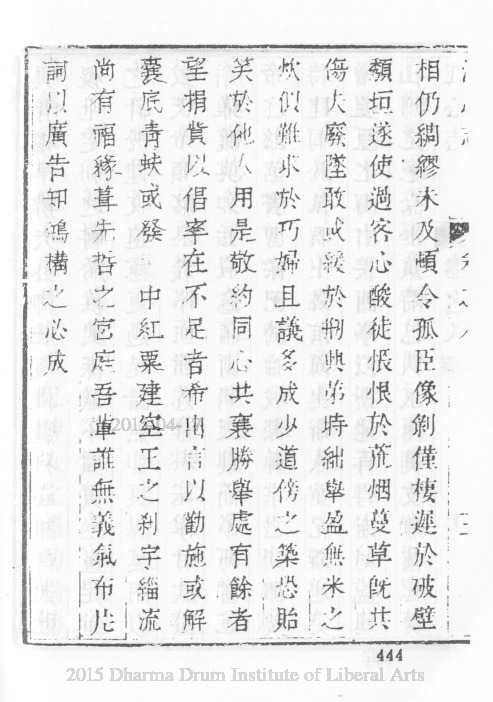 相仍綢繆未及頓令孤臣像劍僅棲遲於破壁
頹垣遂使過客心酸徒悵恨於荒烟蔓草旣共
傷大廈墜敢或緩於捐興苐時絀舉盈無米之
炊似難求於巧婦且議多成少道傍之築恐貽
笑於他人用是敬約同心共襄勝舉處有餘者
望捐貲以倡率在不足者希出言以勸施或解
囊底青蚨或發中紅粟建空王之刹宇緇流
尚有福緣葺先哲之宮庭吾輩誰無義氣布片
詞以廣告知鴻構之必成
444
2015 Dharma Drum Institute of Liberal Arts